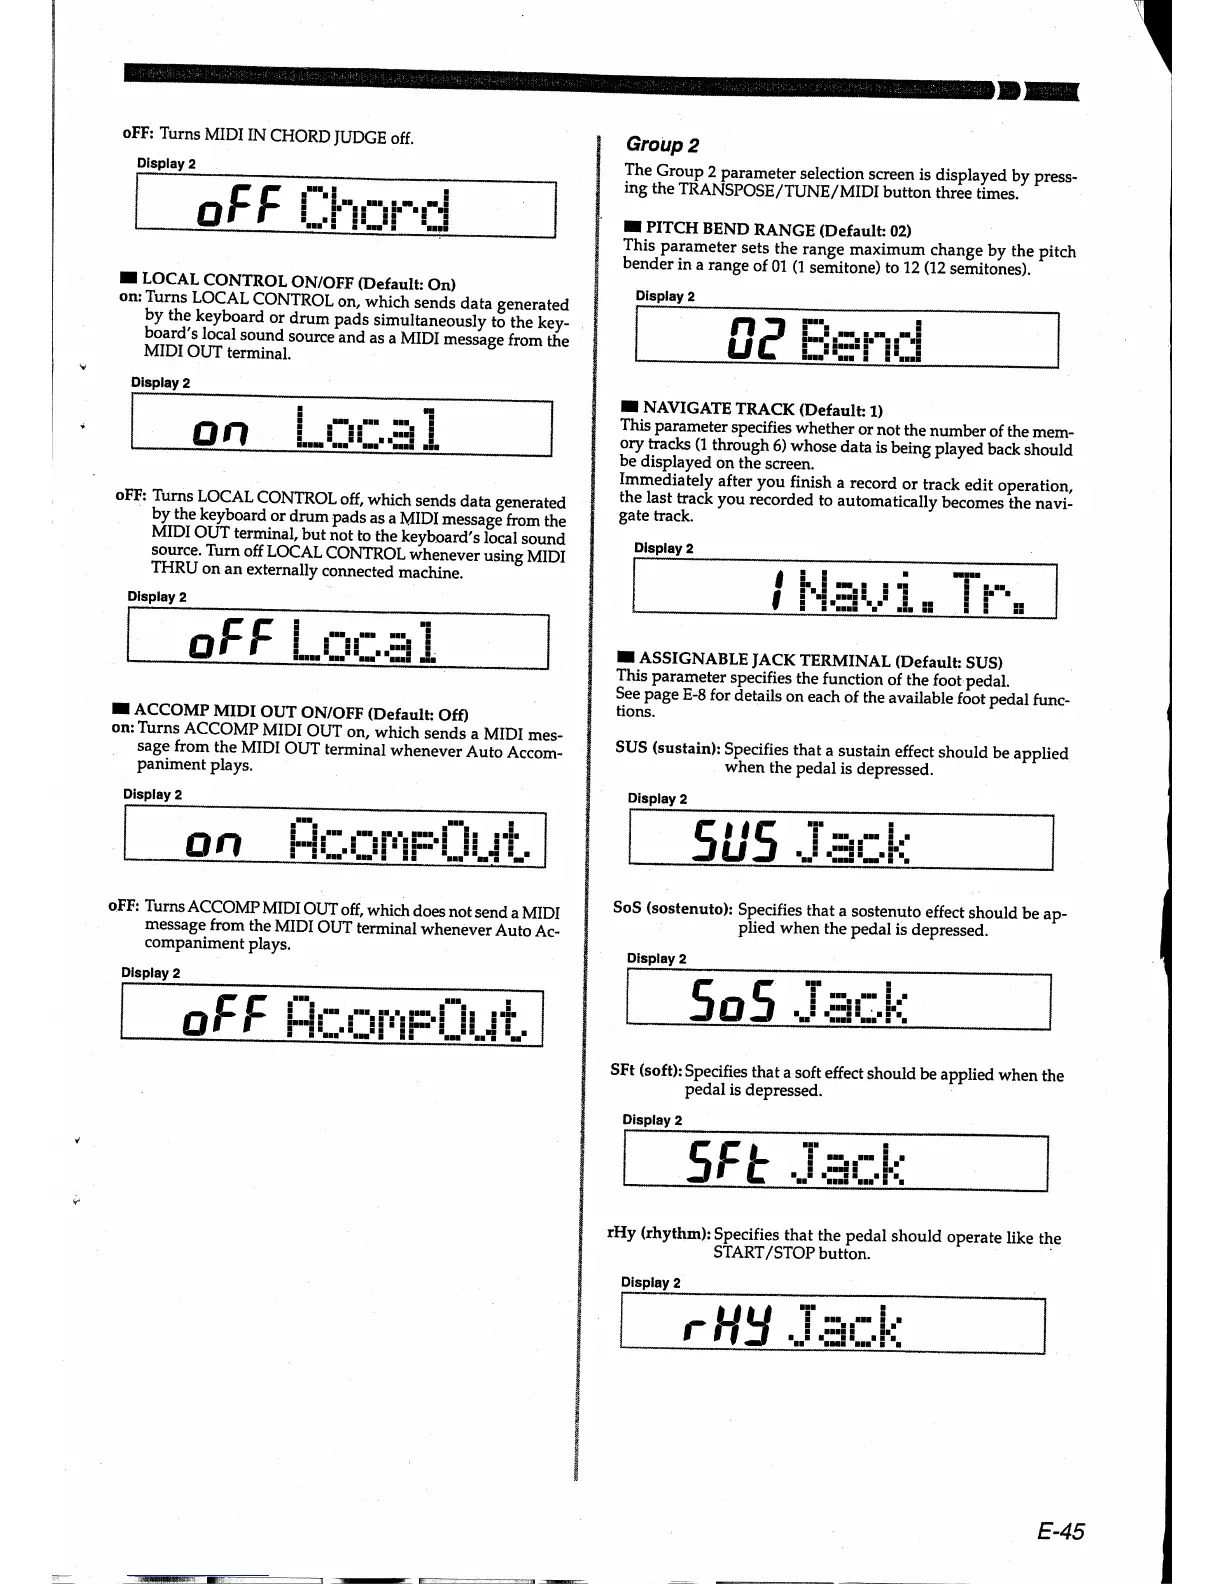 oFF: Turns MIDI IN CHORD JUDGE off.
Display 2
oFF Chord
LOCAL CONTROL ON/OFF (Default: On)
on: Turns LOCAL CONTROL on, which sends data generated
by the keyboard or drum pads simultaneously to the key-
board's local sound source and as a MIDI message from the
MIDI OUT terminal.
Display 2
on Local
oFF: Turns LOCAL CONTROL off, which sends data generated
by the keyboard or drum pads as a MIDI message from the
MIDI OUT terminal, but not to the keyboard's local sound
source. Turn off LOCAL CONTROL whenever using MIDI
THRU on an externally connected machine.
Display 2
oFF Local
ACCOMP MIDI OUT ON/OFF (Default: Off)
on: Turns ACCOMP MIDI OUT on, which sends a MIDI mes-
sage from the MIDI OUT terminal whenever Auto Accom-
paniment plays.
Display 2
on AcompOut
oFF: Turns ACCOMP MIDI OUT off, which does not send a MIDI
message from the MIDI OUT terminal whenever Auto Ac-
companiment plays.
Display 2
oFF AcompOut
Group 2
The Group 2 parameter selection screen is displayed by press-
ing the TRANSPOSE/TUNE/MIDI button three times.
PITCH BEND RANGE (Default: 02)
This parameter sets the range maximum change by the pitch
bender in a range of 01 (1 semitone) to 12 (12 semitones).
Display 2
02 Bend
NAVIGATE TRACK (Default: 1)
This parameter specifies whether or not the number of the mem-
ory tracks (1 through 6) whose data is being played back should
be displayed on the screen.
Immediately after you finish a record or track edit operation,
the last track you recorded to automatically becomes the navi-
gate track.
Display 2
1 Navi. Tr.
ASSIGNABLE JACK TERMINAL (Default: SUS)
This parameter specifies the function of the foot pedal.
See page E-8 for details on each of the available foot pedal func-
tions.
SUS (sustain): Specifies that a sustain effect should be applied
when the pedal is depressed.
Display 2
SUS Jack
SoS (sostenuto): Specifies that a sostenuto effect should be ap-
plied when the pedal is depressed.
Display 2
SoS Jack
SFt (soft): Specifies that a soft effect should be applied when the
pedal is depressed.
Display 2
SFt Jack
rHy (rhythm): Specifies that the pedal should operate like the
START/STOP button.
Display 2
rHy Jack
E-45